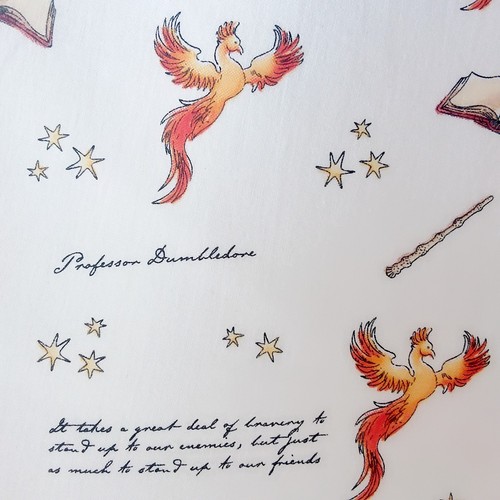 Professor Dumbledore
It takes a great deal of bravery to
stand up to our enemies, but just
as much to stand up to our friends